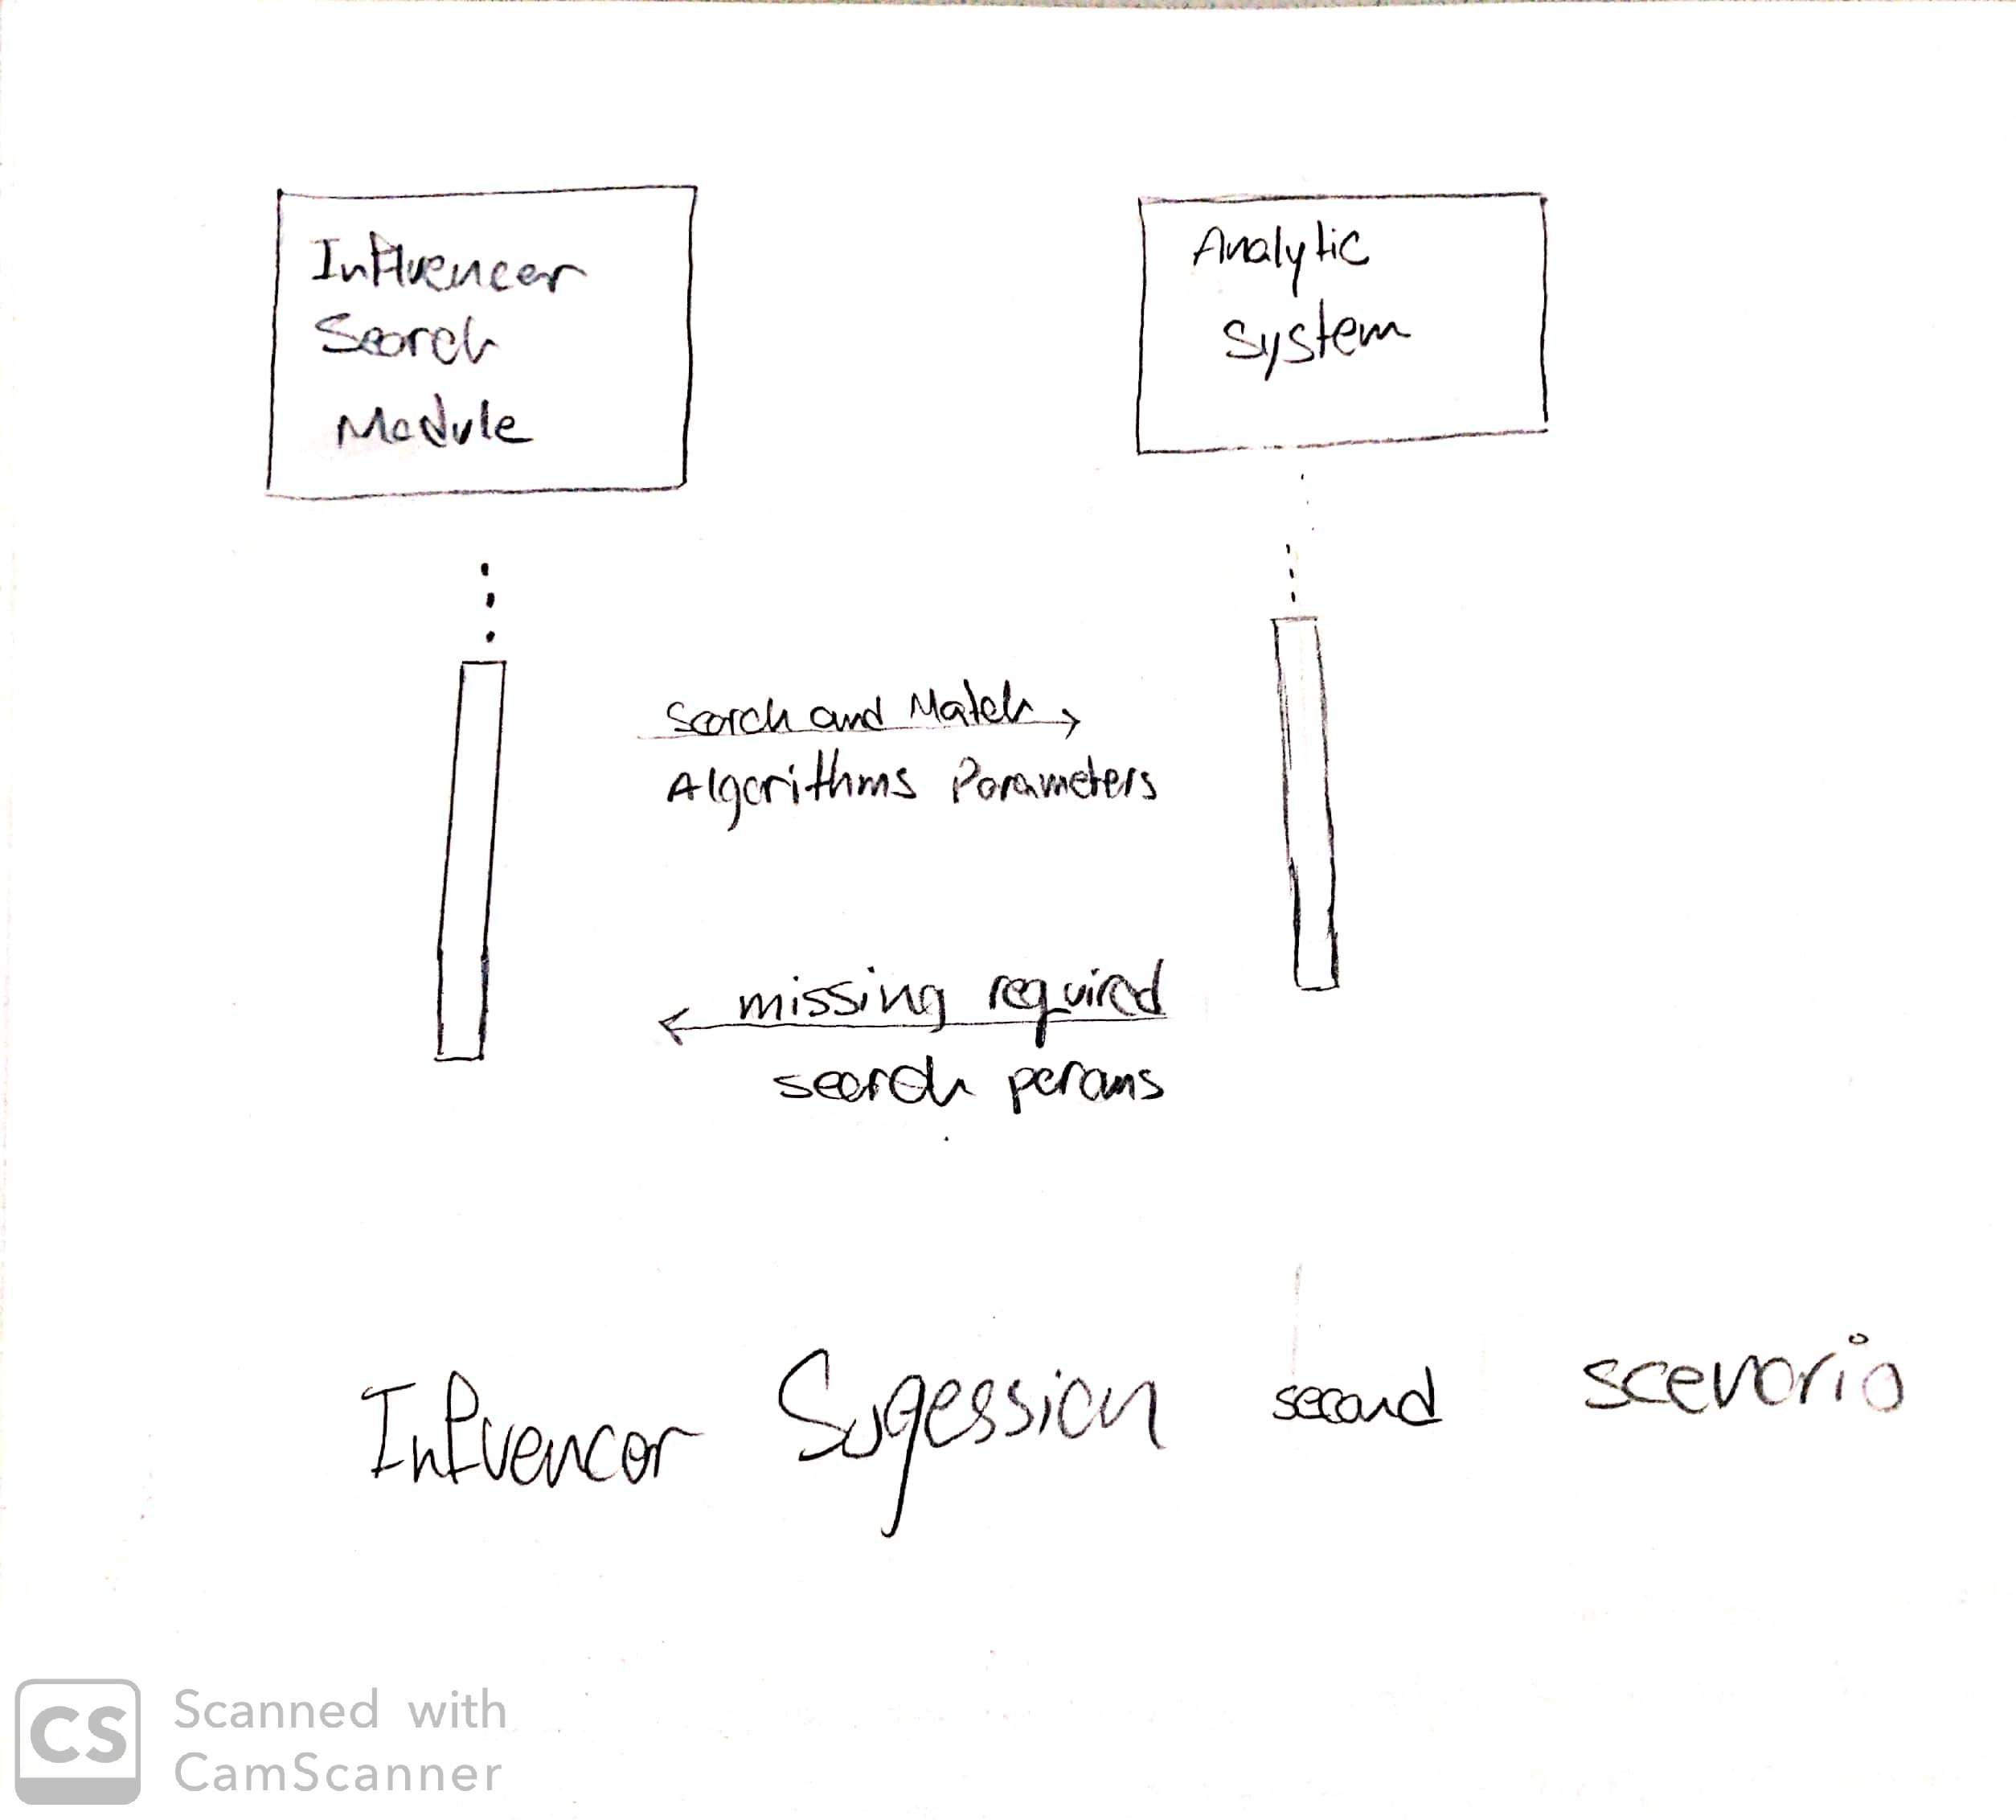 Influencer
Search
Module
Analytic
System
Search and Match
Algorithms Parameters
missing required
search perams
Influencer Sugession second scenario
CS
Scanned with
CamScanner